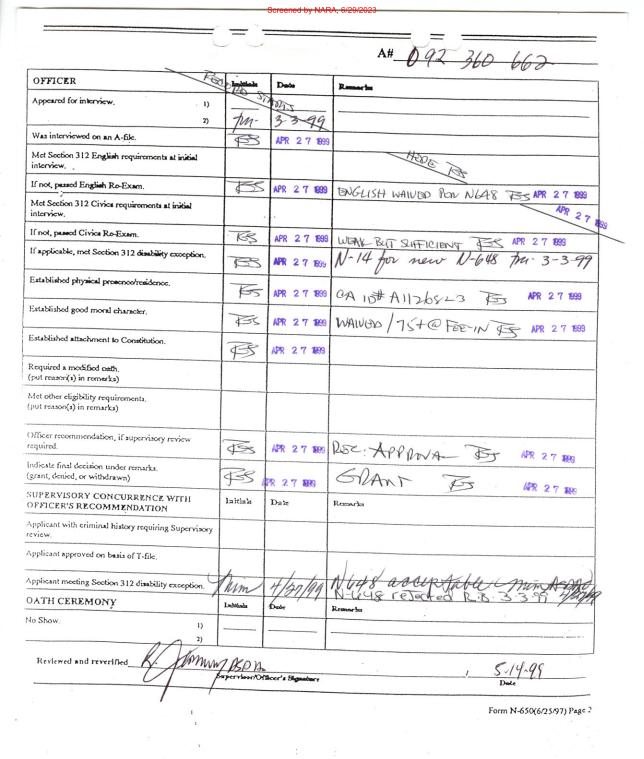 Screened by NARA, 6/29/2023
A# 092 360 662
OFFICER Initials Date Remarks
Appeared for interview. 1)
2) tm- 3-3-99
Was interviewed on an A-file. APR 27 1999
Met Section 312 English requirements at initial
interview.
If not, passed English Re-Exam. APR 27 1999 ENGLISH WAIVED N648 APR 27 1999
Met Section 312 Civics requirements at initial
interview. APR 27 1999
If not, passed Civics Re-Exam. APR 27 1999 WEAK BUT SUFFICIENT APR 27 1999
If applicable, met Section 312 disability exception. APR 27 1999 N-14 for new N-648 tm- 3-3-99
Established physical presence/residence. APR 27 1999 CA ID# APR 27 1999
Established good moral character. APR 27 1999 WAIVED / 75+ @ FEE-IN APR 27 1999
Established attachment to Constitution. APR 27 1999
Required a modified oath.
(put reason(s) in remarks)
Met other eligibility requirements.
(put reason(s) in remarks)
Officer recommendation, if supervisory review
required. APR 27 1999 REC: APPROVAL APR 27 1999
Indicate final decision under remarks.
(grant, denied, or withdrawn) APR 27 1999 GRANT APR 27 1999
SUPERVISORY CONCURRENCE WITH
OFFICER'S RECOMMENDATION Initials Date Remarks
Applicant with criminal history requiring Supervisory
review.
Applicant approved on basis of T-file.
Applicant meeting Section 312 disability exception. 4/27/99 N648 acceptable 4/27/99
N-648 rejected R.B. 3-3-99
OATH CEREMONY Initials Date Remarks
No Show. 1)
2)
Reviewed and reverified 5-14-99
Supervisor/Officer's Signature Date
Form N-650(6/25/97) Page 2